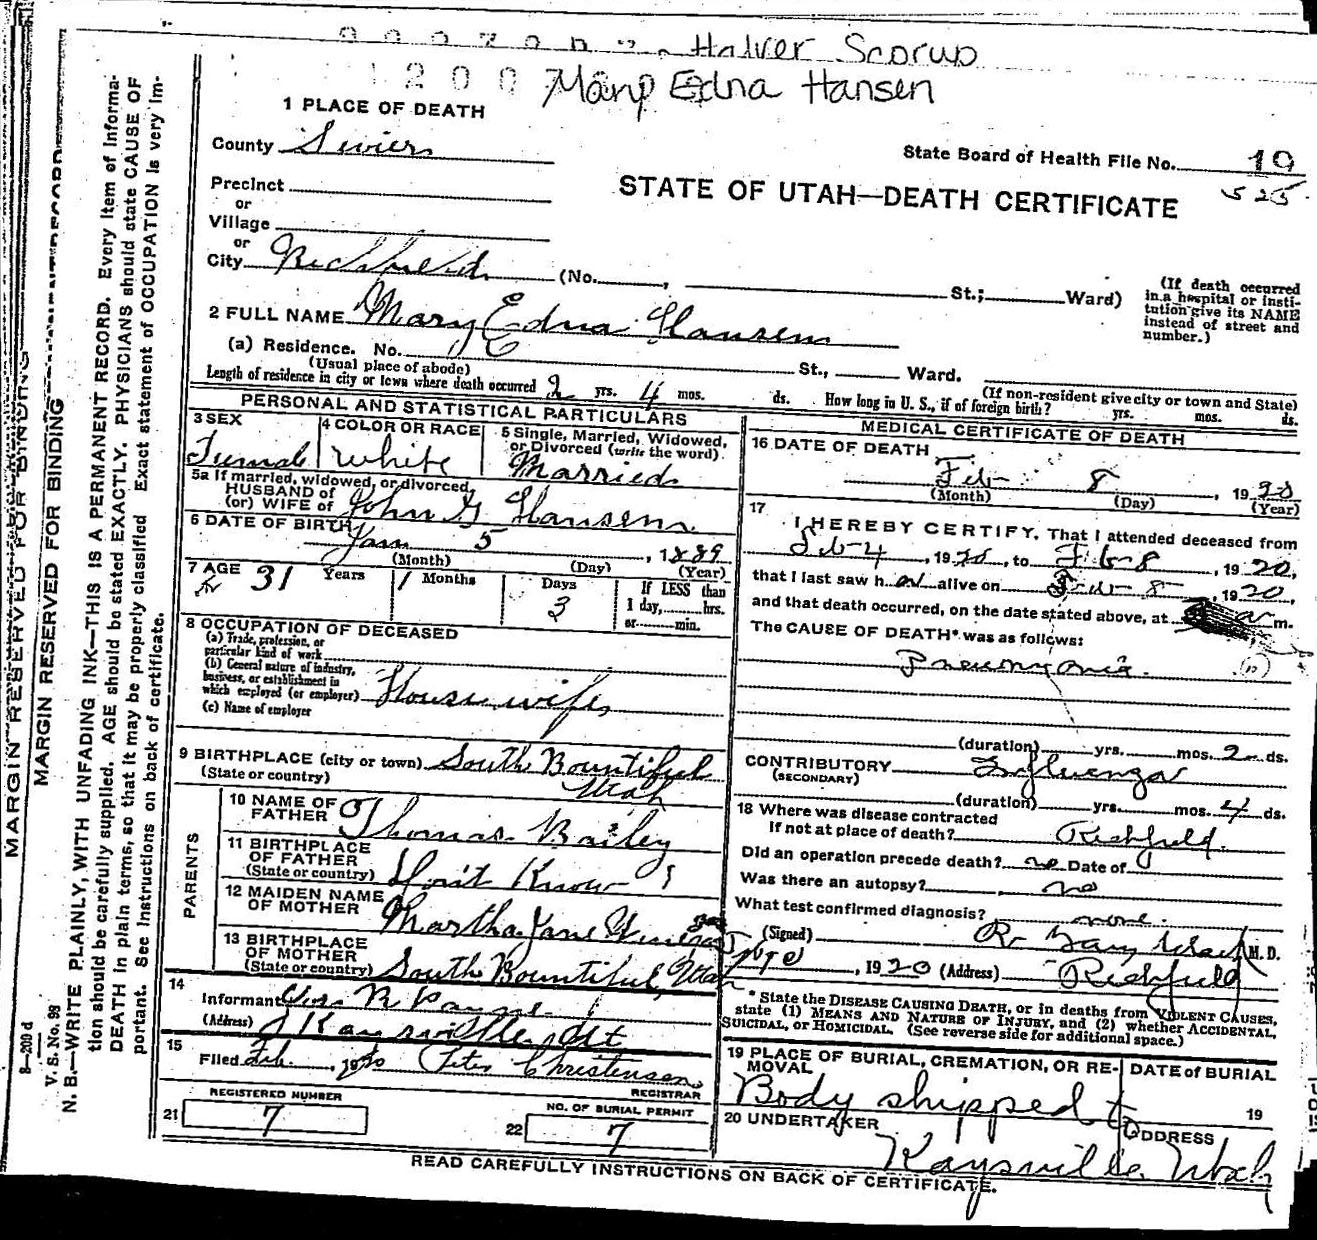 Halver Scorup
Mary Edna Hansen
1 PLACE OF DEATH
County Sevier
State Board of Health File No. 19
525
Precinct
or
STATE OF UTAH—DEATH CERTIFICATE
Village
or
City Richfield (No. , St.; Ward)
(If death occurred in a hospital or institution give its NAME instead of street and number.)
2 FULL NAME Mary Edna Hansen
(a) Residence. No. St., Ward.
(Usual place of abode) (If non-resident give city or town and State)
Length of residence in city or town where death occurred 2 yrs. 4 mos. ds. How long in U. S., if of foreign birth? yrs. mos. ds.
PERSONAL AND STATISTICAL PARTICULARS
3 SEX 4 COLOR OR RACE 5 Single, Married, Widowed,
or Divorced (write the word)
Female White Married
5a If married, widowed, or divorced,
HUSBAND of
(or) WIFE of John G Hansen
6 DATE OF BIRTH
Jan 5, 1889
(Month) (Day) (Year)
7 AGE 31 Years 1 Months 3 Days
If LESS than
1 day, hrs.
or min.
8 OCCUPATION OF DECEASED
(a) Trade, profession, or
particular kind of work
(b) General nature of industry,
business, or establishment in
which employed (or employer) Housewife
(c) Name of employer
9 BIRTHPLACE (city or town) South Bountiful
(State or country) Utah
PARENTS
10 NAME OF
FATHER Thomas Bailey
11 BIRTHPLACE
OF FATHER
(State or country) Don't Know
12 MAIDEN NAME
OF MOTHER Martha Jane
13 BIRTHPLACE
OF MOTHER
(State or country) South Bountiful, Utah
14
Informant R Payne
(Address) Kaysville Ut
15
Filed Feb. , 1920 Christensen
REGISTRAR
REGISTERED NUMBER
21 7
NO. OF BURIAL PERMIT
22 7
MEDICAL CERTIFICATE OF DEATH
16 DATE OF DEATH
Feb 8, 1920
(Month) (Day) (Year)
17
I HEREBY CERTIFY, That I attended deceased from
Feb-4, 1920, to Feb-8, 1920,
that I last saw her alive on Feb-8-, 1920,
and that death occurred, on the date stated above, at a m.
The CAUSE OF DEATH* was as follows:
Pneumonia.
(duration) yrs. mos. 2 ds.
CONTRIBUTORY Influenza
(SECONDARY)
(duration) yrs. mos. 4 ds.
18 Where was disease contracted
If not at place of death? Richfield.
Did an operation precede death? no Date of
Was there an autopsy? no
What test confirmed diagnosis? none.
(Signed) M. D.
, 1920 (Address) Richfield
* State the DISEASE CAUSING DEATH, or in deaths from VIOLENT CAUSES,
state (1) MEANS AND NATURE OF INJURY, and (2) whether ACCIDENTAL,
SUICIDAL, or HOMICIDAL. (See reverse side for additional space.)
19 PLACE OF BURIAL, CREMATION, OR RE-
MOVAL
DATE of BURIAL
Body shipped to 19
20 UNDERTAKER ADDRESS
Kaysville Utah
READ CAREFULLY INSTRUCTIONS ON BACK OF CERTIFICATE.
MARGIN RESERVED FOR BINDING
MARGIN RESERVED FOR BINDING
B—209 d
V. S. No. 98
N. B.—WRITE PLAINLY, WITH UNFADING INK—THIS IS A PERMANENT RECORD. Every item of informa-
tion should be carefully supplied. AGE should be stated EXACTLY. PHYSICIANS should state CAUSE OF
DEATH in plain terms, so that it may be properly classified Exact statement of OCCUPATION is very im-
portant. See instructions on back of certificate.